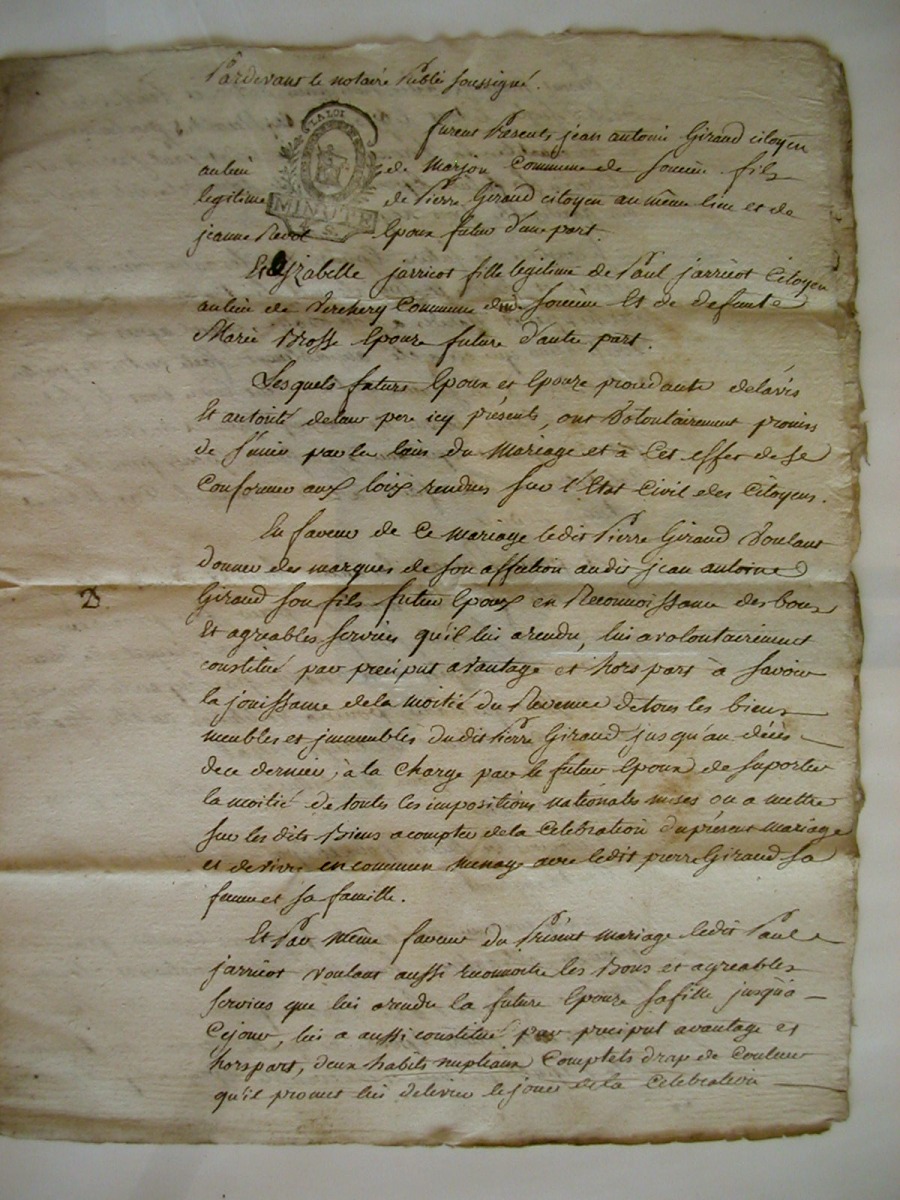 Pardevant le notaire Public soussigné.
furent Presents jean antoine Giraud citoyen
LA LOI
au lieu de Marjon Commune de Soucieu fils
legitime de Pierre Giraud citoyen au même lieu et de
MINUTE
jeanne Revol Epoux futur d'une part.
Et Yzabelle jarricot fille legitime de Paul jarricot Citoyen
au lieu de Verchery Commune dud. Soucieu Et de defunte
Marie Brosse Epouze future d'autre part.
Lesquels futurs Epoux et Epouze procedants de lavis
Et autorité de leur pere icy présents, ont Volontairement promis
de S'unir par les liens du Mariage et à Cet effet de se
Conformer aux loix rendues sur l'Etat Civil des Citoyens.
En faveur de Ce mariage ledit Pierre Giraud Voulant
donner des marques de son affection audit jean antoine
Giraud son fils futur Epoux en Reconnoissance des bons
Et agreables services qu'il lui a rendu, lui a volontairement
constitué par preciput avantage et hors part à Savoir
la jouissance de la moitié du Revenu de tous les biens
meubles et jmmeubles dudit Pierre Giraud jusqu'au décès
de ce dernier, à la Charge par le futur Epoux de suporter
la moitié de toutes les impositions nationales mises ou a mettre
sur les dits Biens a compter de la Celebration du présent mariage
et de vivre en commun menage avec ledit pierre Giraud sa
femme et sa famille.
Et Par même faveur du Présent mariage ledit Paul
jarricot voulant aussi reconnoitre les Bons et agreables
services que lui a rendu la future Epouze sa fille jusqu'à
Ce jour, lui a aussi constitué par preciput avantage et
hors part, deux habits nuptiaux Complets drap de Couleur
qu'il promet lui delivrer le jour de la Celebration